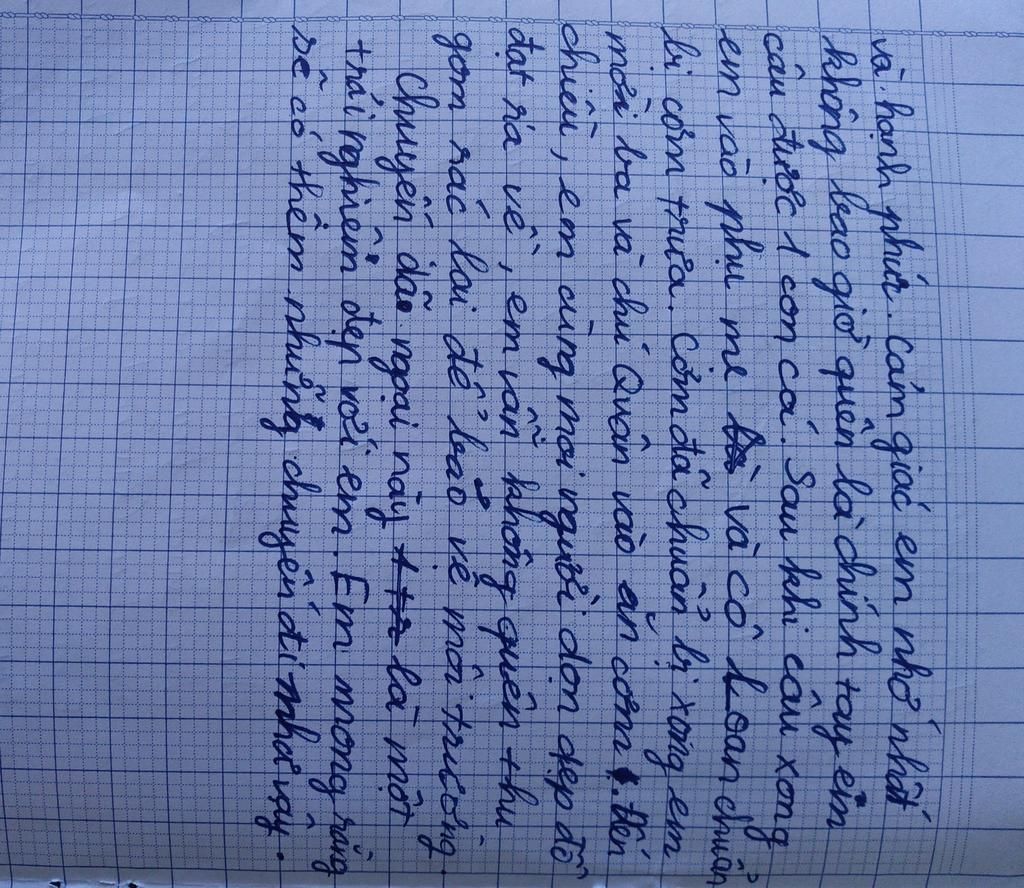 và hạnh phúc. Cảm giác em nhớ nhất
không bao giờ quên là chính tay em
câu được 1 con cá. Sau khi câu xong
em vào phụ mẹ và cô Loan chuẩn
bị cơm trưa. Cơm đã chuẩn bị xong em
mời ba và chú Quân vào ăn cơm. Đến
chiều, em cùng mọi người dọn dẹp đồ
đạt ra về, em vẫn không quên thu
gom rác lại để bảo vệ môi trường.
Chuyến dã ngoại này là một
trải nghiệm đẹp với em. Em mong rằng
sẽ có thêm những chuyến đi như vậy.